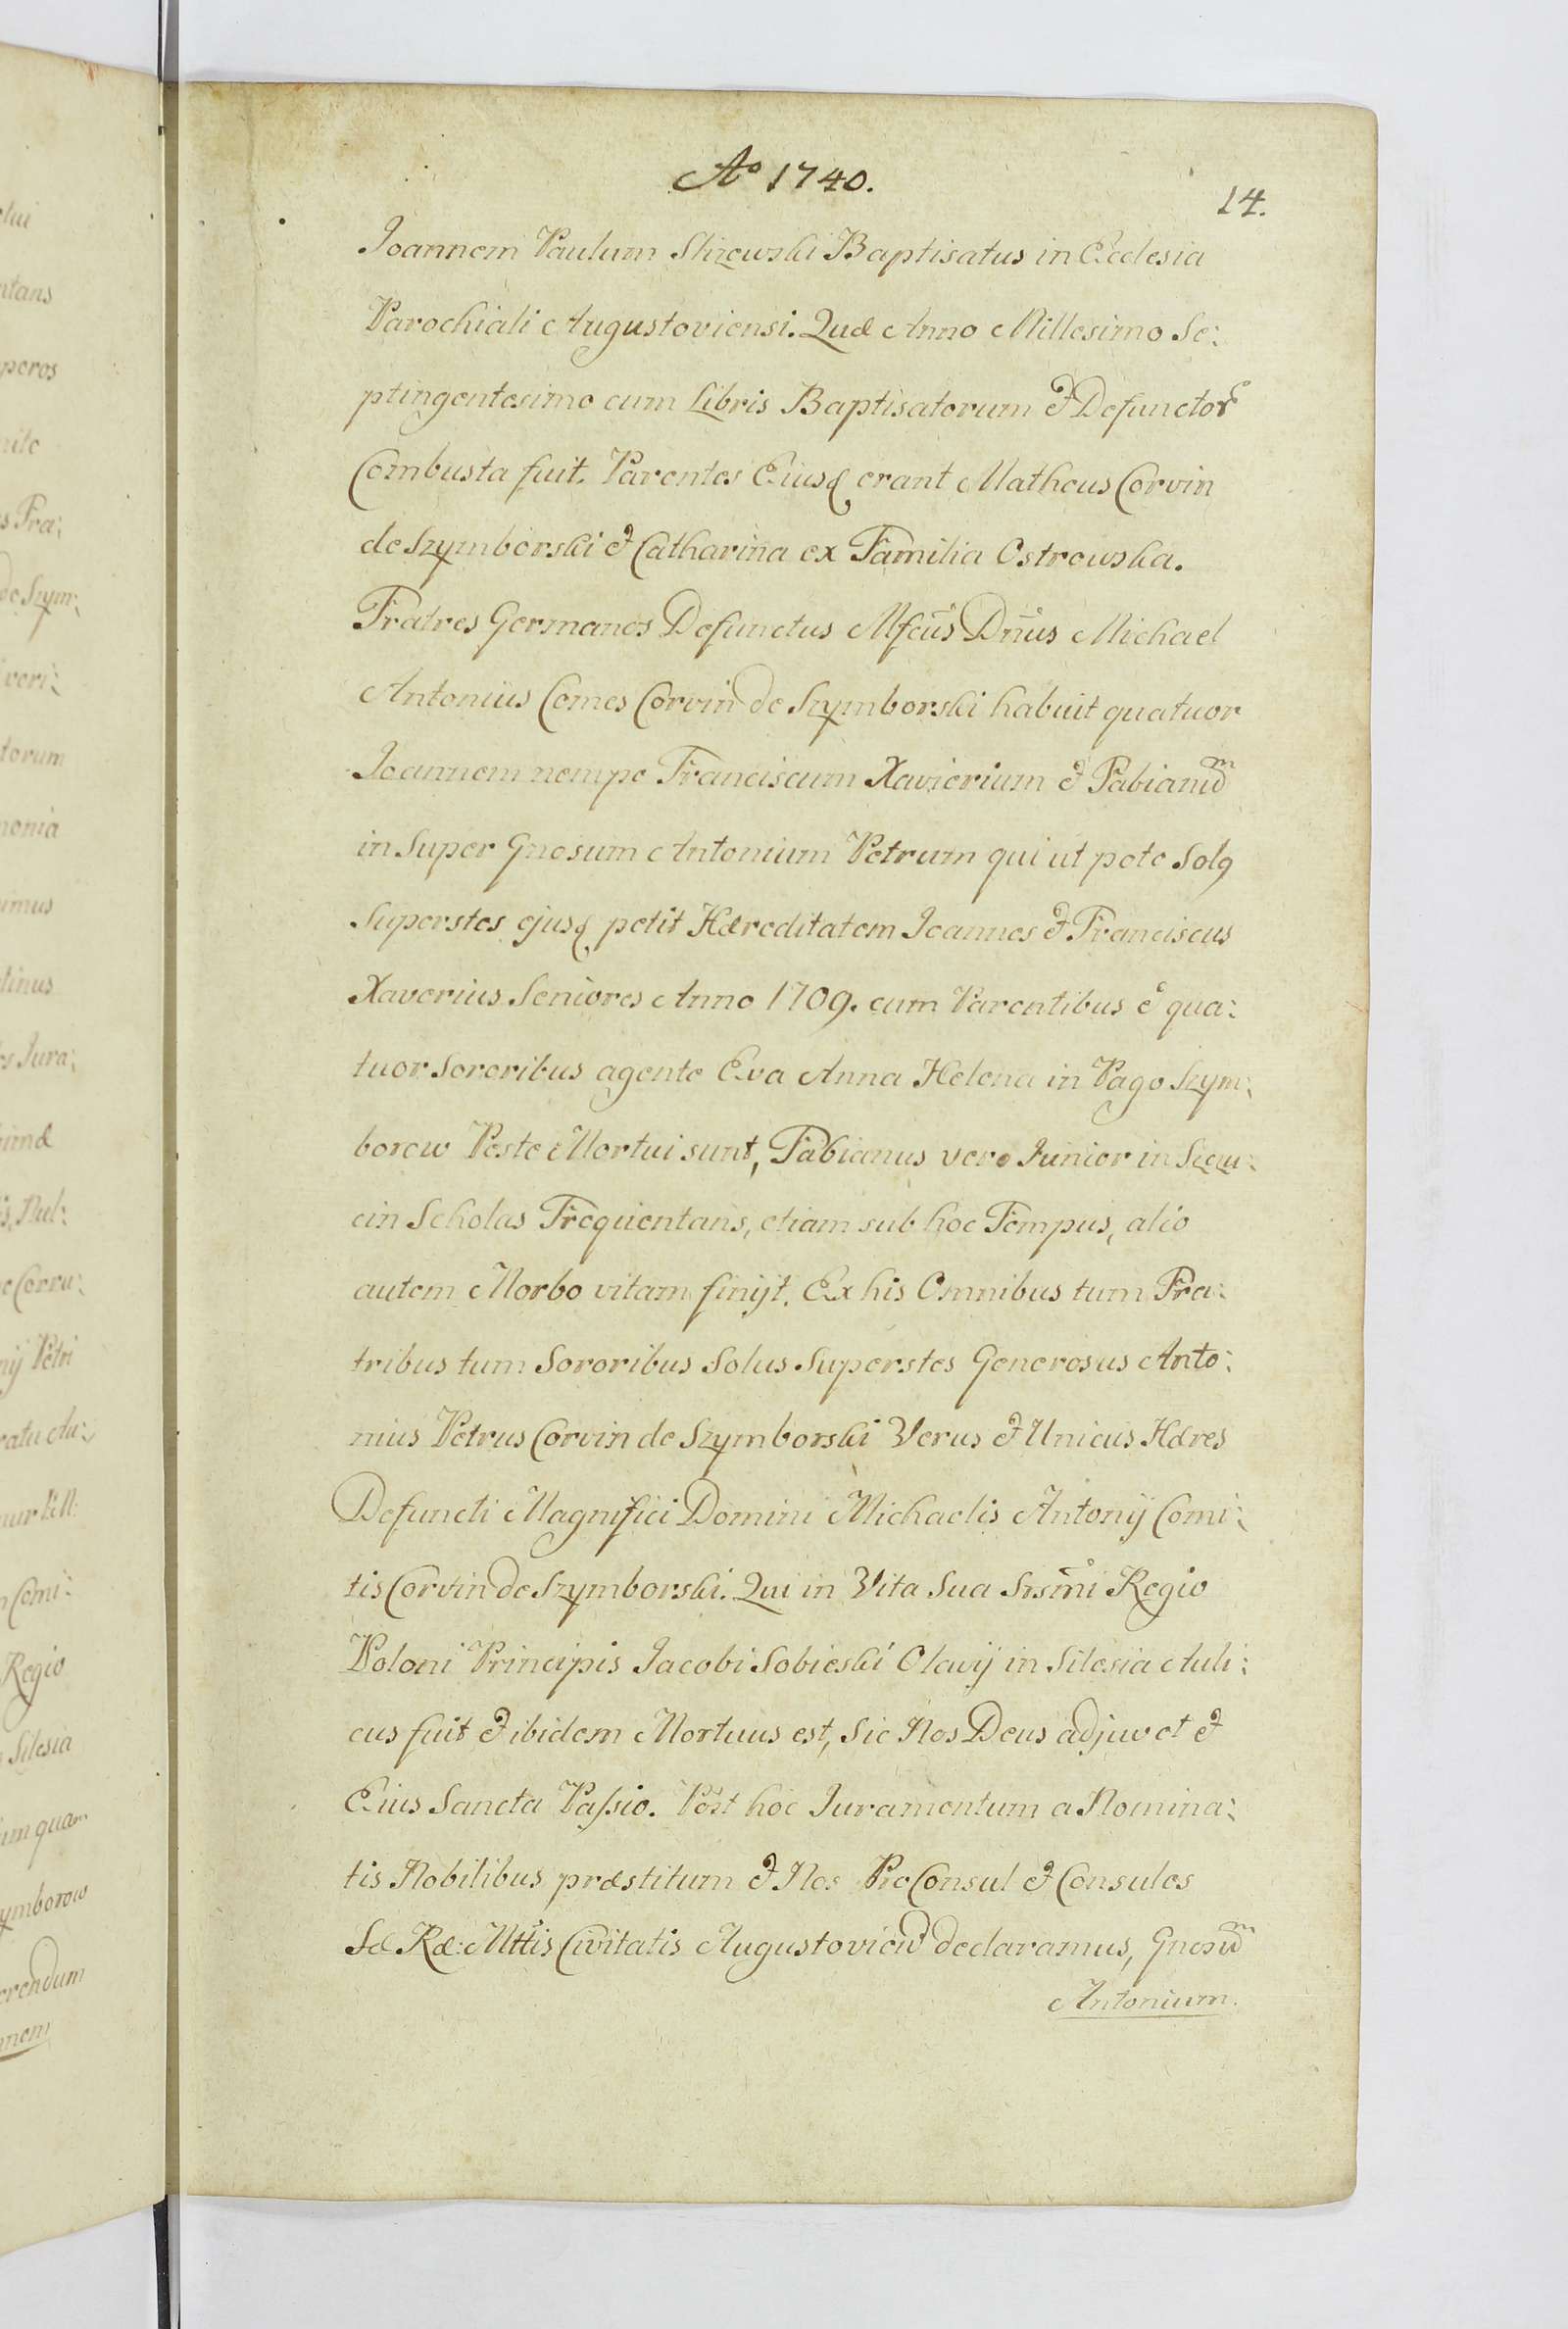 Ao 1740.
14.
Joannem Paulum Slizewski Baptisatus in Ecclesia
Parochiali Augustoviensi. Quæ Anno Millesimo Se:
ptingentesimo cum Libris Baptisatorum & Defunctor
Combusta fuit. Parentes Eiusq erant Matheus Corvin
de Szymborski & Catharina ex Familia Ostrowska.
Fratres Germanos Defunctus Mfcus Dnus Michael
Antonius Comes Corvin de Szymborski habuit quatuor
Joannem nempe Franciscum Xavierium & Fabianum
in Super Gnosum Antonium Petrum qui ut pote Solq
Superstes ejusq petit Hæreditatem Joannes & Franciscus
Xaverius Seniores Anno 1709. cum Parentibus & qua:
tuor Sororibus agente Eva Anna Helena in Pago Szym:
borow Peste Mortui sunt, Fabianus vero Junior in Sczu:
cin Scholas Frequentans, etiam sub hoc Tempus, alio
autem Morbo vitam finijt. Ex his Omnibus tum Fra:
tribus tum Sororibus Solus Superstes Generosus Anto:
nius Petrus Corvin de Szymborski Verus & Unicus Hæres
Defuncti Magnifici Domini Michaelis Antonij Comi:
tis Corvin de Szymborski. Qui in Vita Sua Srsmi Regio
Poloni Principis Jacobi Sobieski Olavij in Silesia Auli:
cus fuit & ibidem Mortuus est, Sic Nos Deus adjuvet &
Eius Sancta Passio. Post hoc Juramentum a Nomina:
tis Nobilibus præstitum & Nos ProConsul & Consules
Sæ Ræ: Mttis Civitatis Augustoview declaramus, Gnosum
Antonium.
tui
ntans
peros
s Fra:
de Szym:
veri:
torum
monia
imus
tinus
Jura:
Nul:
Corru:
nij Petri
Comi:
Regio
Silesia
um quam
ymborow
erendum
nem